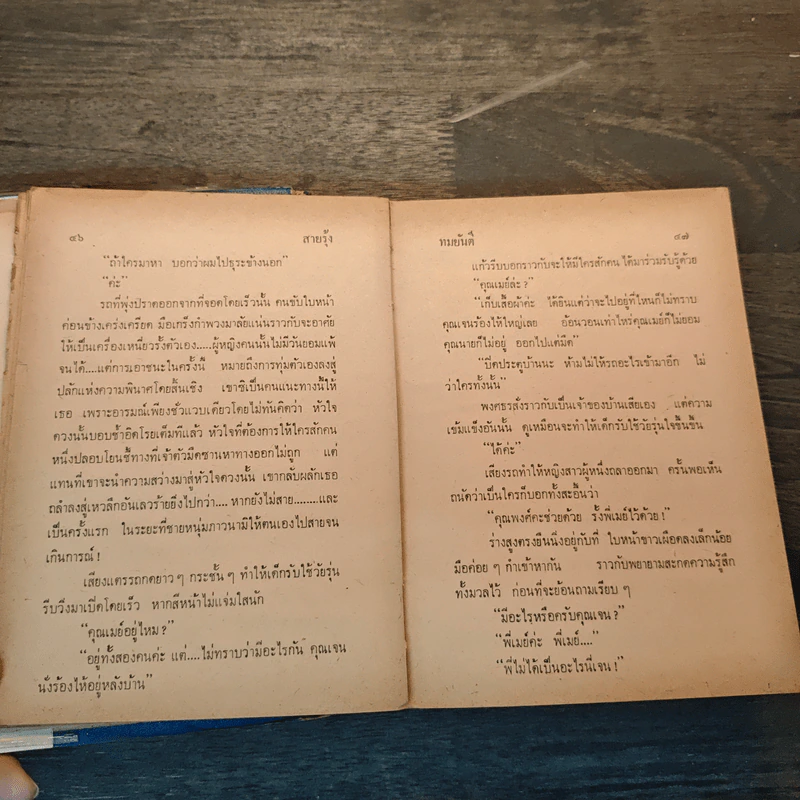 ๔๖ สายรุ้ง
“ถ้าใครมาหา บอกว่าผมไปธุระข้างนอก”
“ค่ะ”
รถที่พุ่งปราดออกจากที่จอดโดยเร็วนั้น คนขับใบหน้า
ค่อนข้างเคร่งเครียด มือเกร็งกำพวงมาลัยแน่นราวกับจะอาศัย
ให้เป็นเครื่องเหนี่ยวรั้งตัวเอง.....ผู้หญิงคนนั้นไม่มีวันยอมแพ้
จนได้....แต่การเอาชนะในครั้งนี้ หมายถึงการทุ่มตัวเองลงสู่
ปลักแห่งความพินาศโดยสิ้นเชิง เขาซิเป็นคนแนะทางนี้ให้
เธอ เพราะอารมณ์เพียงชั่วแวบเดียวโดยไม่ทันคิดว่า หัวใจ
ดวงนั้นบอบช้ำอิดโรยเต็มทีแล้ว หัวใจที่ต้องการให้ใครสักคน
หนึ่งปลอบโยนชี้ทางที่เจ้าตัวมืดซานหาทางออกไม่ถูก แต่
แทนที่เขาจะนำความสว่างมาสู่หัวใจดวงนั้น เขากลับผลักเธอ
ถลำลงสู่เหวลึกอันเลวร้ายยิ่งไปกว่า.... หากยังไม่สาย........และ
เป็นครั้งแรก ในระยะที่ชายหนุ่มภาวนามิให้ตนเองไปสายจน
เกินการณ์ !
เสียงแตรรถกดยาว ๆ กระชั้น ๆ ทำให้เด็กรับใช้วัยรุ่น
รีบวิ่งมาเปิดโดยเร็ว หากสีหน้าไม่แจ่มใสนัก
“คุณเมย์อยู่ไหม ?”
“อยู่ทั้งสองคนค่ะ แต่....ไม่ทราบว่ามีอะไรกัน คุณเจน
นั่งร้องไห้อยู่หลังบ้าน”
ทมยันตี ๔๗
แก้วรีบบอกราวกับจะให้มีใครสักคน ได้มาร่วมรับรู้ด้วย
“คุณเมย์ล่ะ ?”
“เก็บเสื้อผ้าค่ะ ได้ยินแต่ว่าจะไปอยู่ที่ไหนก็ไม่ทราบ
คุณเจนร้องไห้ใหญ่เลย อ้อนวอนเท่าไหร่คุณเมย์ก็ไม่ยอม
คุณนายก็ไม่อยู่ ออกไปแต่มืด”
“ปิดประตูบ้านนะ ห้ามไม่ให้รถอะไรเข้ามาอีก ไม่
ว่าใครทั้งนั้น”
พงศธรสั่งราวกับเป็นเจ้าของบ้านเสียเอง แต่ความ
เข้มแข็งอันนั้น ดูเหมือนจะทำให้เด็กรับใช้วัยรุ่นใจชื้นขึ้น
“ได้ค่ะ”
เสียงรถทำให้หญิงสาวผู้หนึ่งถลาออกมา ครั้นพอเห็น
ถนัดว่าเป็นใครก็บอกทั้งสะอื้นว่า
“คุณพงศ์คะช่วยด้วย รั้งพี่เมย์ไว้ด้วย !”
ร่างสูงตรงยืนนิ่งอยู่กับที่ ใบหน้าขาวเผือดลงเล็กน้อย
มือค่อย ๆ กำเข้าหากัน ราวกับพยายามสะกดความรู้สึก
ทั้งมวลไว้ ก่อนที่จะย้อนถามเรียบ ๆ
“มีอะไรหรือครับคุณเจน ?”
“พี่เมย์ค่ะ พี่เมย์....”
“พี่ไม่ได้เป็นอะไรนี่เจน !”